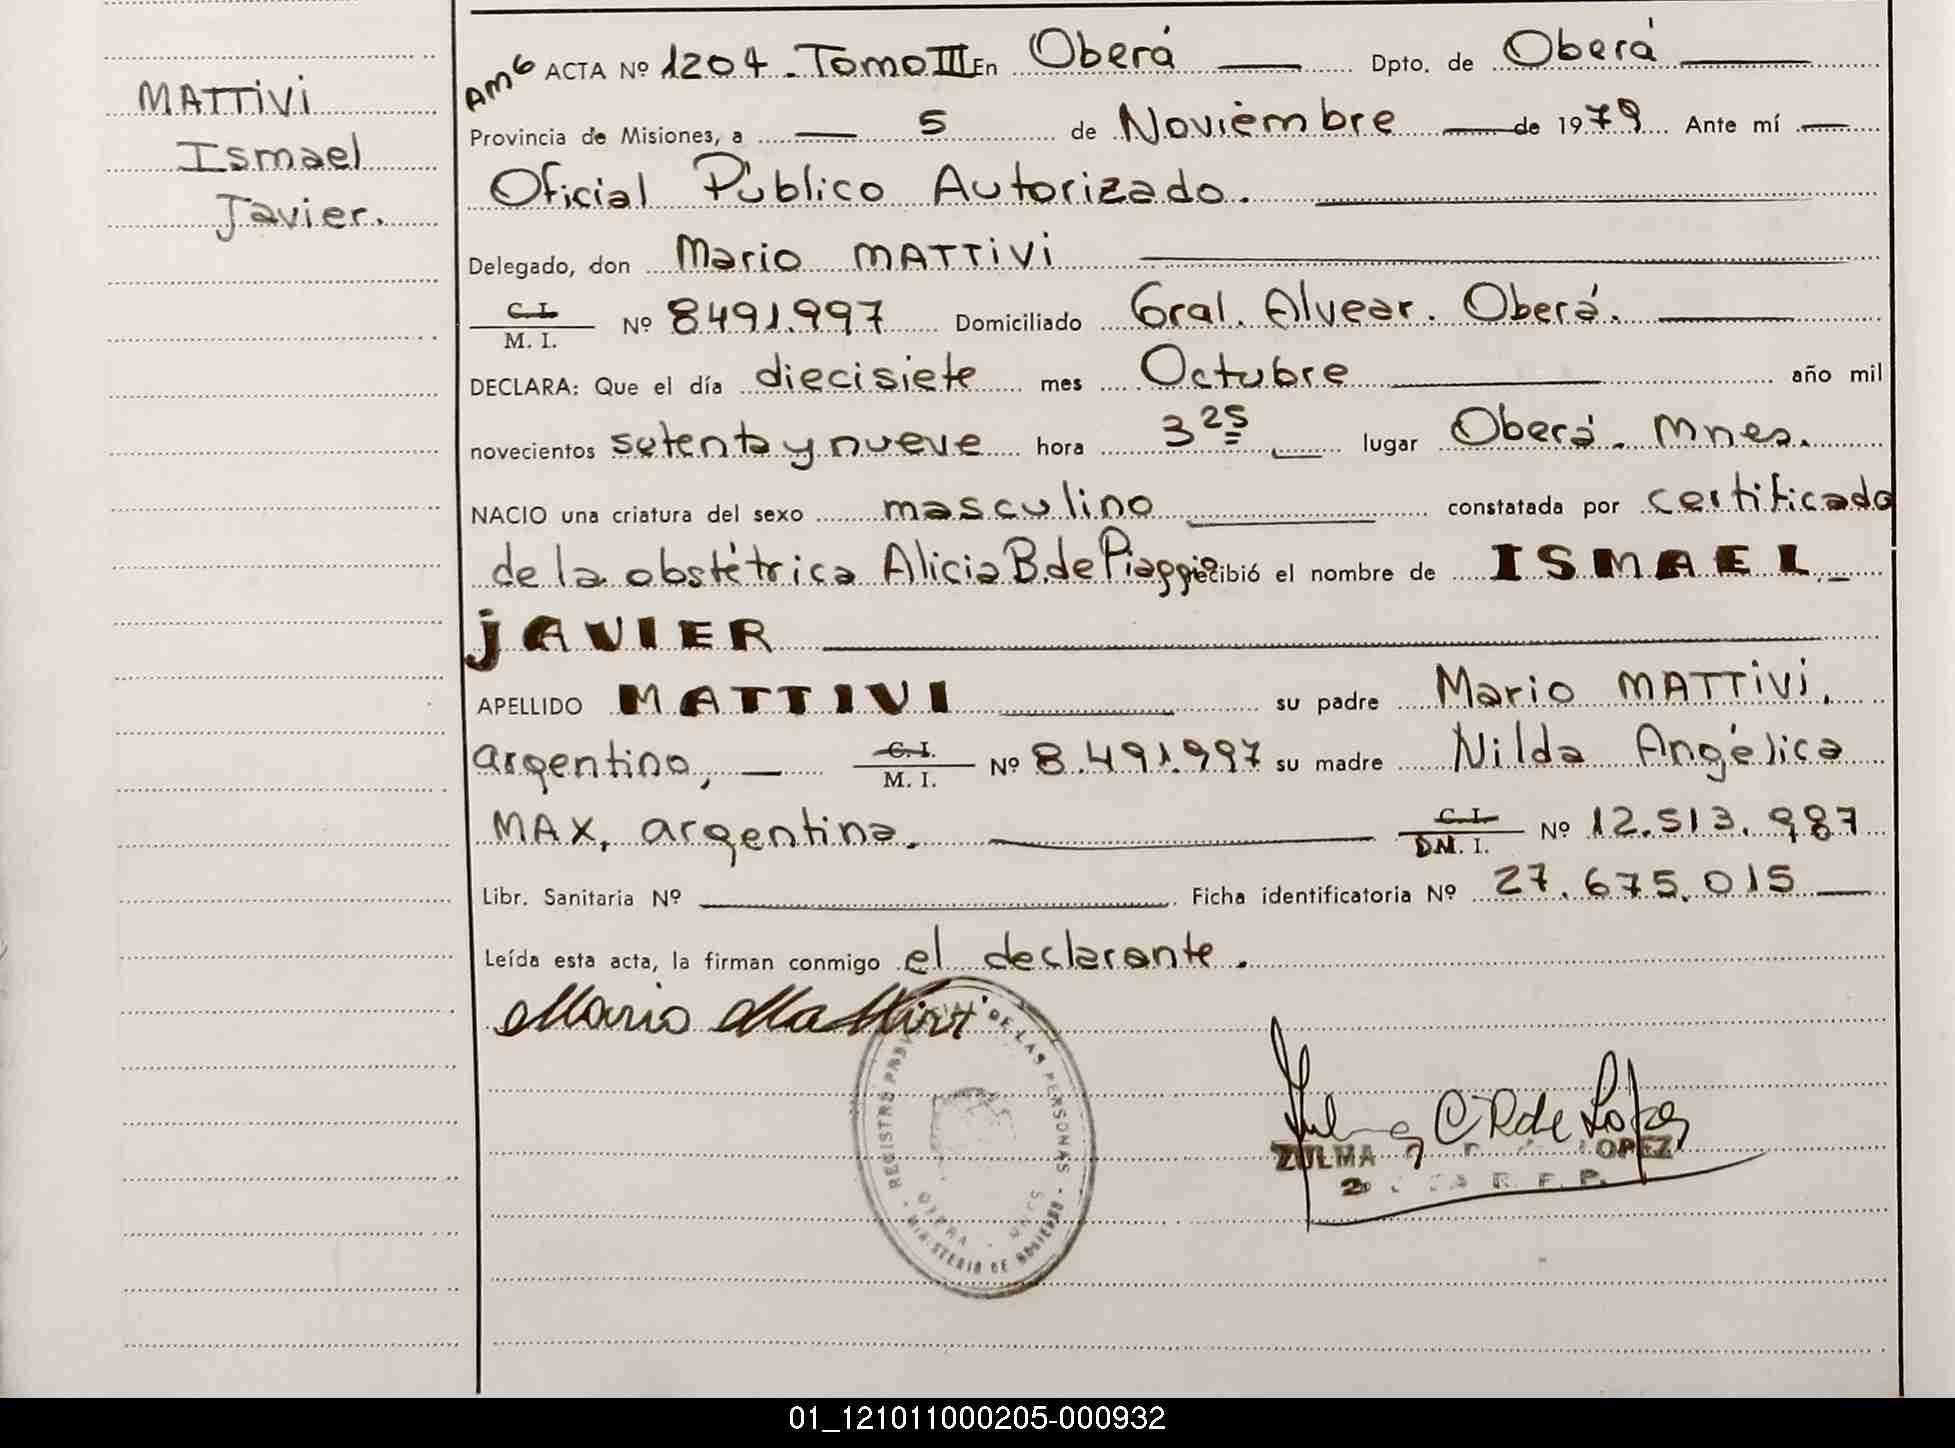 MATTIVI
Ismael
Javier.
AM6 ACTA Nº 1204. Tomo III En Oberá Dpto. de Oberá
Provincia de Misiones, a 5 de Noviembre de 1979 Ante mí
Oficial Público Autorizado.
Delegado, don Mario MATTIVI
C. I.
M. I. Nº 8491.997 Domiciliado Gral. Alvear. Oberá.
DECLARA: Que el día diecisiete mes Octubre año mil
novecientos setenta y nueve hora 3 25 lugar Oberá. Mnes.
NACIO una criatura del sexo masculino constatada por certificado
de la obstétrica Alicia B. de Piaggio recibió el nombre de ISMAEL
JAVIER
APELLIDO MATTIVI su padre Mario MATTIVI,
argentino, C. I. M. I. Nº 8.491.997 su madre Nilda Angélica
MAX, argentina. C. I. D.N. I. Nº 12.513.987
Libr. Sanitaria Nº Ficha identificatoria Nº 27.675.015
Leída esta acta, la firman conmigo el declarante.
Mario Mattivi
REGISTRO DE LAS PERSONAS
OBERA - MNES
MINISTERIO DE GOBIERNO
Zulma C R de Lopez
ZULMA LOPEZ
R. F. P.
01_121011000205-000932